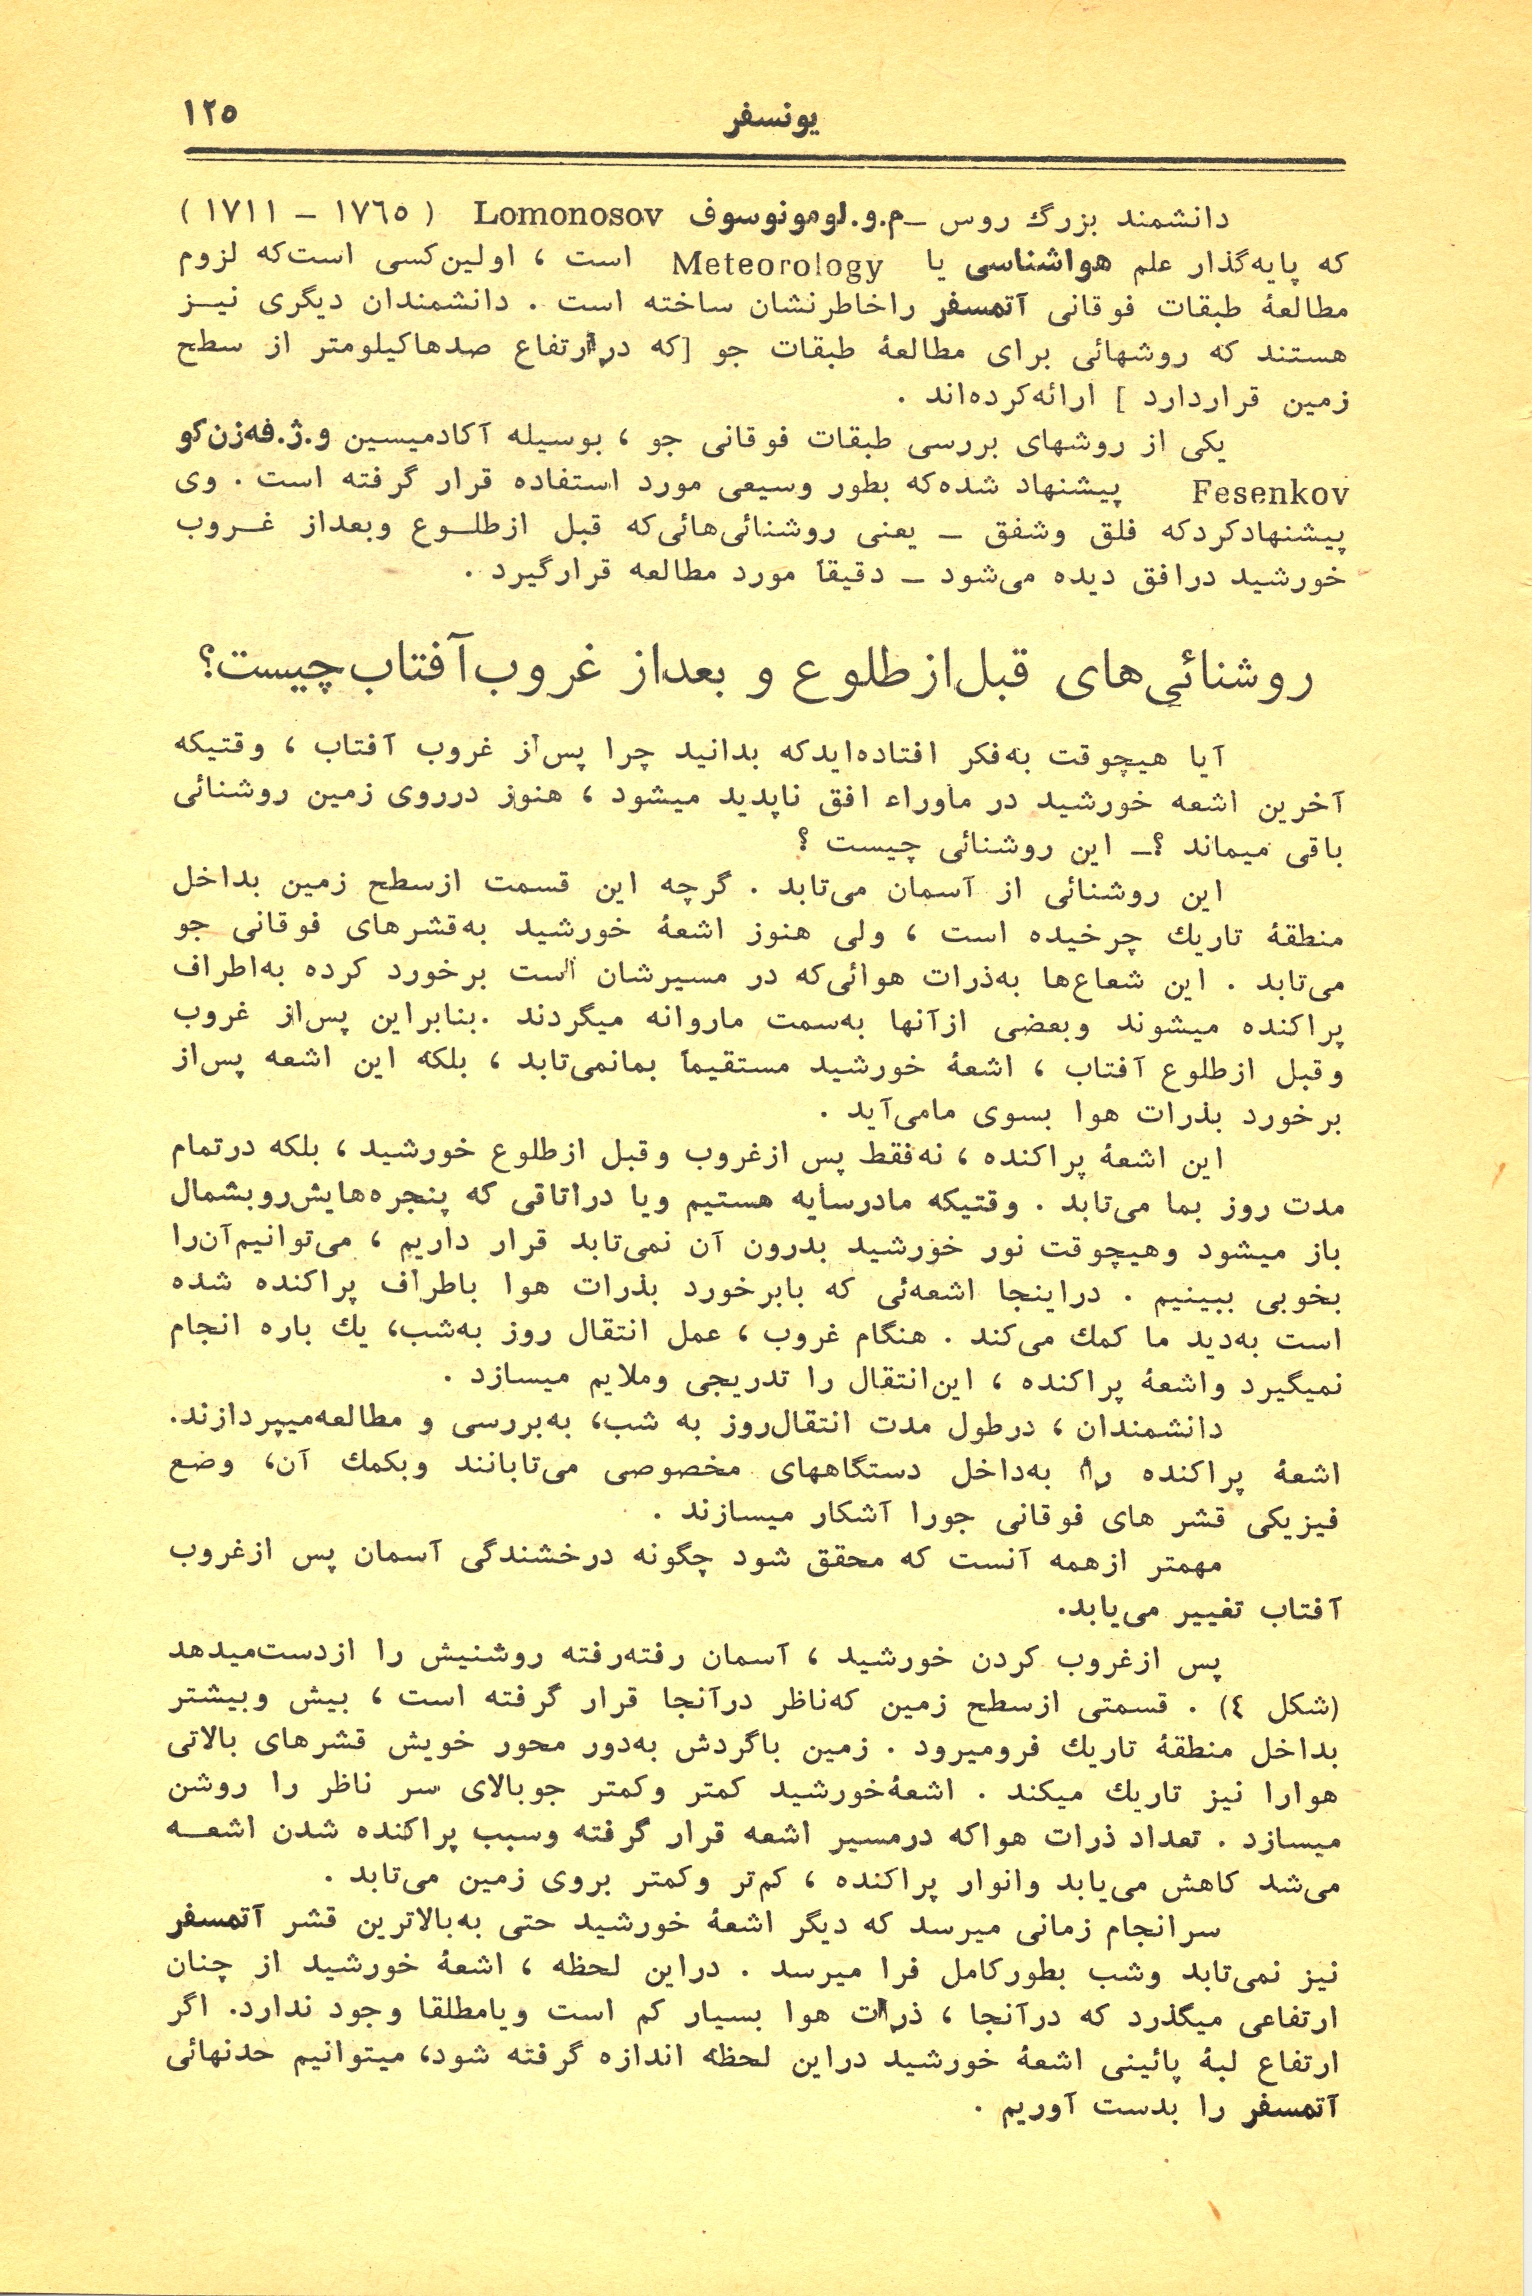 یونسفر
۱۲۵
دانشمند بزرگ روس _م.و.لومونوسوف Lomonosov (۱۷۶۵ – ۱۷۱۱)
که پایه‌گذار علم هواشناسی یا Meteorology است ، اولین‌کسی است‌که لزوم
مطالعهٔ طبقات فوقانی آتمسفر راخاطرنشان ساخته است . دانشمندان دیگری نیــز
هستند که روشهائی برای مطالعهٔ طبقات جو [که درارتفاع صدهاکیلومتر از سطح
زمین قراردارد ] ارائه‌کرده‌اند .
یکی از روشهای بررسی طبقات فوقانی جو ، بوسیله آکادمیسین و.ژ.فه‌زن‌کو
Fesenkov پیشنهاد شده‌که بطور وسیعی مورد استفاده قرار گرفته است . وی
پیشنهادکردکه فلق وشفق _ یعنی روشنائی‌هائی‌که قبل ازطلــوع وبعداز غــروب
خورشید درافق دیده می‌شود _ دقیقاً مورد مطالعه قرارگیرد .
روشنائی‌های قبل‌از طلوع و بعداز غروب‌آفتاب‌چیست؟
آیا هیچوقت به‌فکر افتاده‌ایدکه بدانید چرا پس‌از غروب آفتاب ، وقتیکه
آخرین اشعه خورشید در ماوراء افق ناپدید میشود ، هنوز درروی زمین روشنائی
باقی میماند ؟_ این روشنائی چیست ؟
این روشنائی از آسمان می‌تابد . گرچه این قسمت ازسطح زمین بداخل
منطقهٔ تاریك چرخیده است ، ولی هنوز اشعهٔ خورشید به‌قشرهای فوقانی جو
می‌تابد . این شعاع‌ها به‌ذرات هوائی‌که در مسیرشان است برخورد کرده به‌اطراف
پراکنده میشوند وبعضی ازآنها به‌سمت ماروانه میگردند .بنابراین پس‌از غروب
وقبل ازطلوع آفتاب ، اشعهٔ خورشید مستقیماً بمانمی‌تابد ، بلکه این اشعه پس‌از
برخورد بذرات هوا بسوی مامی‌آید .
این اشعهٔ پراکنده ، نه‌فقط پس ازغروب وقبل ازطلوع خورشید ، بلکه درتمام
مدت روز بما می‌تابد . وقتیکه مادرسایه هستیم ویا دراتاقی که پنجره‌هایش‌روبشمال
باز میشود وهیچوقت نور خورشید بدرون آن نمی‌تابد قرار داریم ، می‌توانیم‌آن‌را
بخوبی ببینیم . دراینجا اشعه‌ئی که بابرخورد بذرات هوا باطراف پراکنده شده
است به‌دید ما کمك می‌کند . هنگام غروب ، عمل انتقال روز به‌شب، یك باره انجام
نمیگیرد واشعهٔ پراکنده ، این‌انتقال را تدریجی وملایم میسازد .
دانشمندان ، درطول مدت انتقال‌روز به شب، به‌بررسی و مطالعه‌میپردازند.
اشعهٔ پراکنده را به‌داخل دستگاههای مخصوصی می‌تابانند وبکمك آن، وضع
فیزیکی قشر های فوقانی جورا آشکار میسازند .
مهمتر ازهمه آنست که محقق شود چگونه درخشندگی آسمان پس ازغروب
آفتاب تغییر می‌یابد.
پس ازغروب کردن خورشید ، آسمان رفته‌رفته روشنیش را ازدست‌میدهد
(شکل ٤) . قسمتی ازسطح زمین که‌ناظر درآنجا قرار گرفته است ، بیش وبیشتر
بداخل منطقهٔ تاریك فرومیرود . زمین باگردش به‌دور محور خویش قشرهای بالاتی
هوارا نیز تاریك میکند . اشعهٔ‌خورشید کمتر وکمتر جوبالای سر ناظر را روشن
میسازد . تعداد ذرات هواکه درمسیر اشعه قرار گرفته وسبب پراکنده شدن اشعــه
می‌شد کاهش می‌یابد وانوار پراکنده ، کم‌تر وکمتر بروی زمین می‌تابد .
سرانجام زمانی میرسد که دیگر اشعهٔ خورشید حتی به‌بالاترین قشر آتمسفر
نیز نمی‌تابد وشب بطورکامل فرا میرسد . دراین لحظه ، اشعهٔ خورشید از چنان
ارتفاعی میگذرد که درآنجا ، ذرات هوا بسیار کم است ویامطلقا وجود ندارد. اگر
ارتفاع لبهٔ پائینی اشعهٔ خورشید دراین لحظه اندازه گرفته شود، میتوانیم حدنهائی
آتمسفر را بدست آوریم .